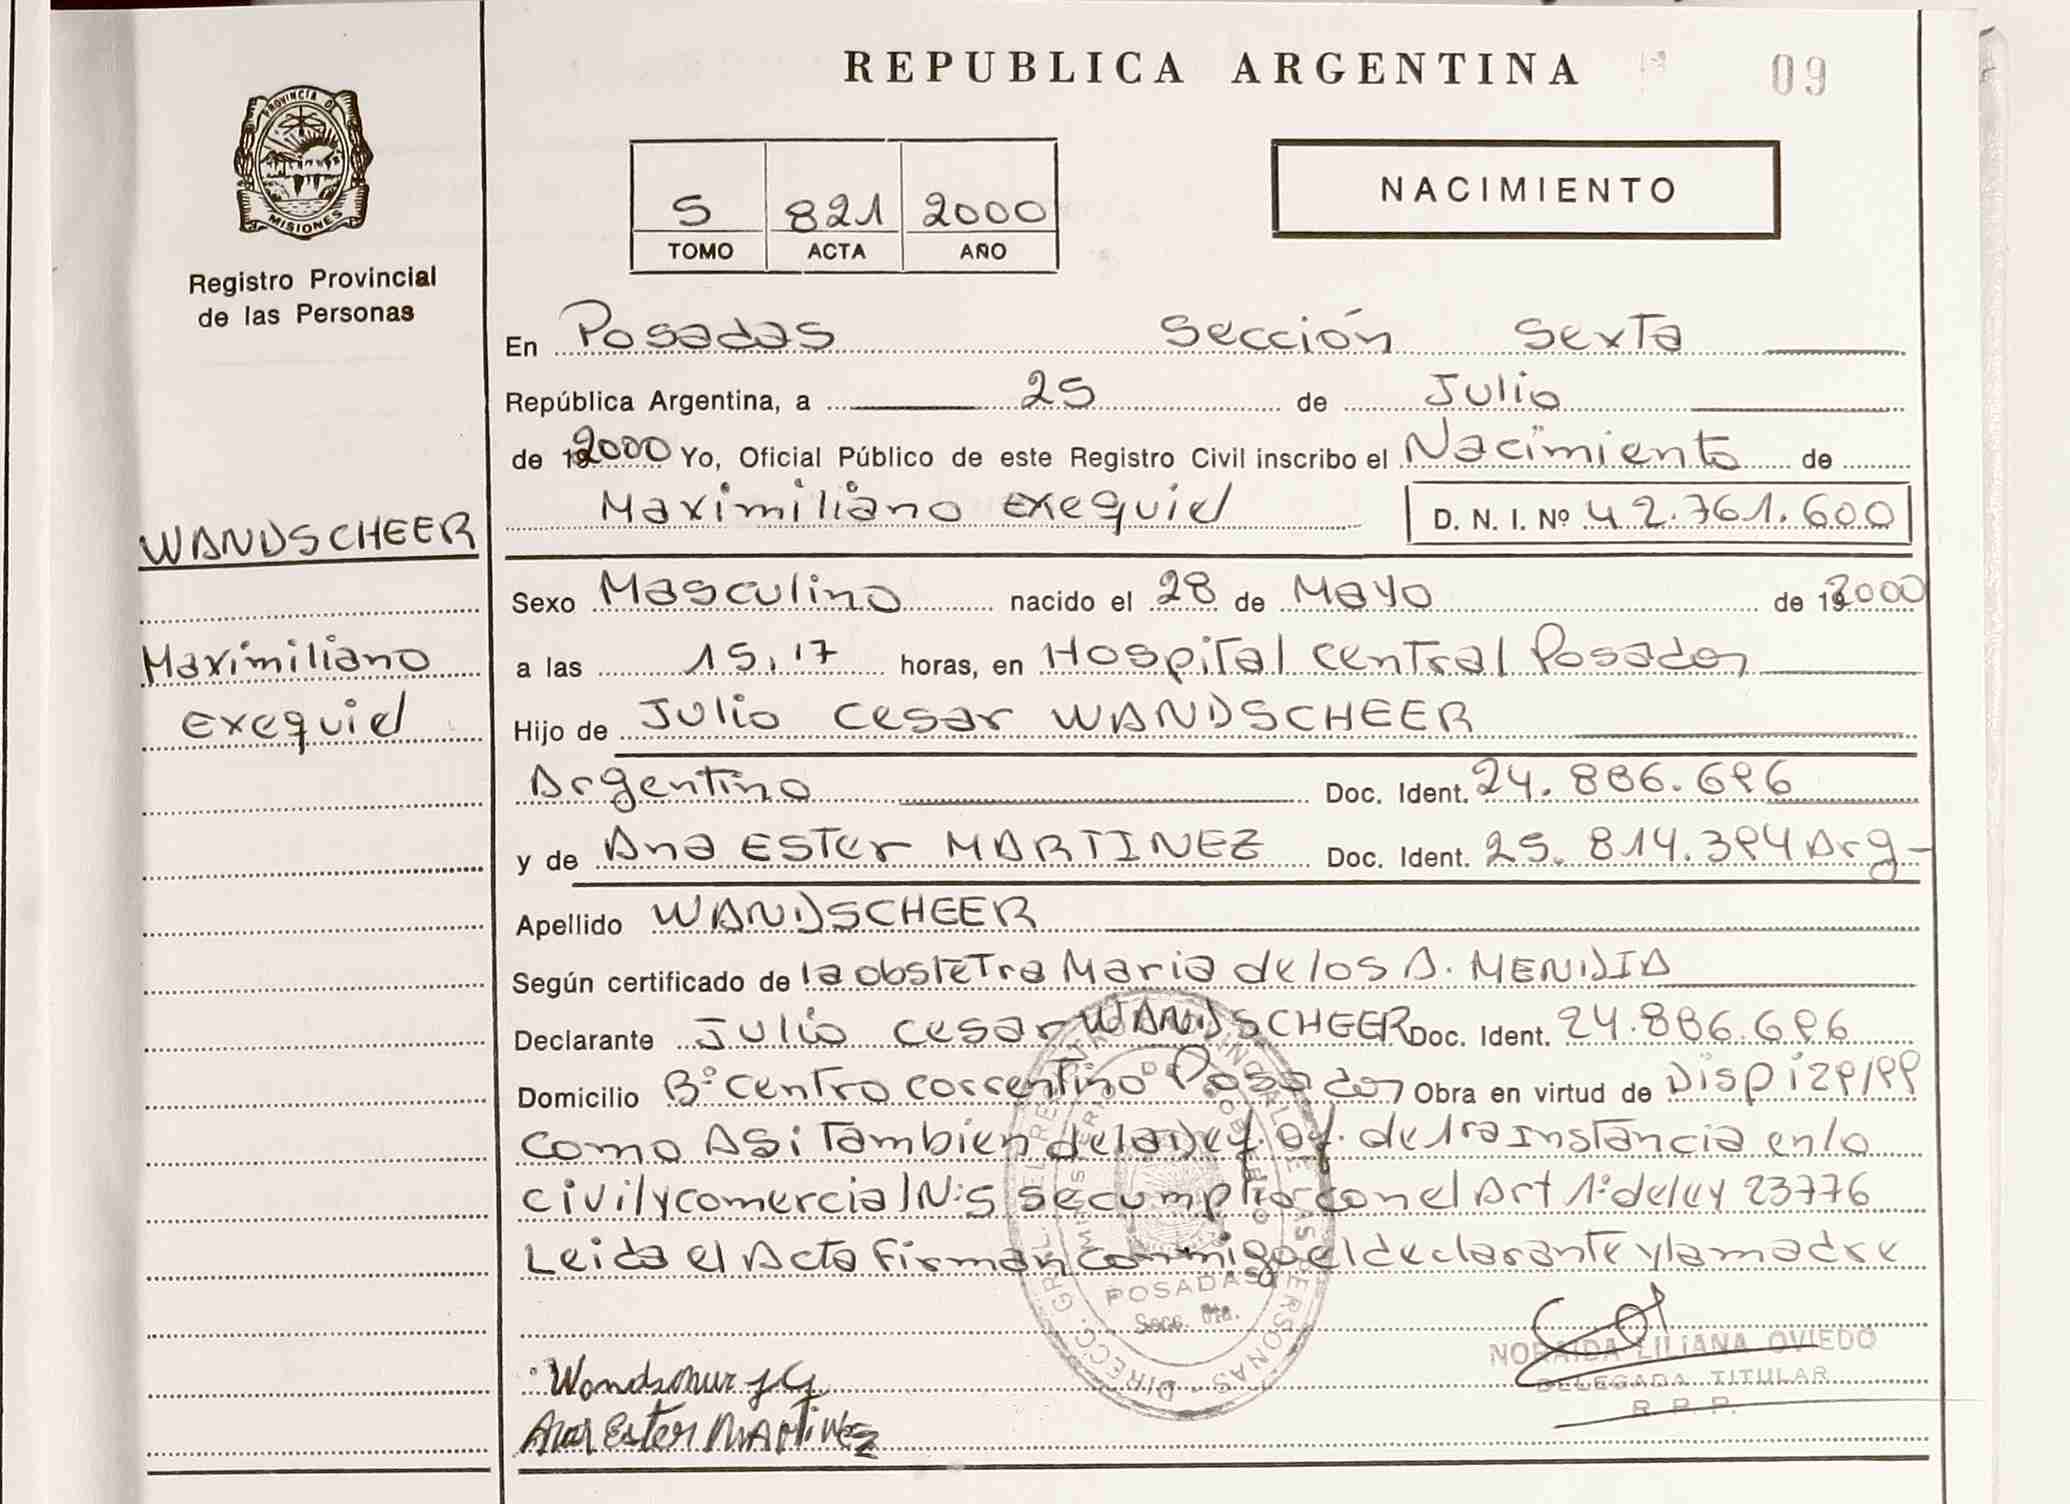 REPUBLICA ARGENTINA
09
PROVINCIA DE
MISIONES
Registro Provincial
de las Personas
5 821 2000
TOMO ACTA AÑO
NACIMIENTO
En Posadas Sección Sexta
República Argentina, a 25 de Julio
de 2000 Yo, Oficial Público de este Registro Civil inscribo el Nacimiento de
Maximiliano Exequiel D. N. I. Nº 42.761.600
WANDSCHEER
Maximiliano
Exequiel
Sexo Masculino nacido el 28 de Mayo de 2000
a las 15,17 horas, en Hospital Central Posadas
Hijo de Julio Cesar WANDSCHEER
Argentino Doc. Ident. 24.886.696
y de Ana Ester MARTINEZ Doc. Ident. 25.814.394 Arg-
Apellido WANDSCHEER
Según certificado de la obstetra Maria de los A. MENDIA
Declarante Julio Cesar WANDSCHEER Doc. Ident. 24.886.696
Domicilio Bº Centro Correntino Posadas Obra en virtud de Disp 129/99
Como Asi Tambien de la Def. Of. de 1ra Instancia en lo
Civil y comercial Nº 5 se cumplio con el Art 1º de ley 23776
Leida el Acta Firman conmigo el declarante y la madre
DIRECC. GRAL. REG. PROVINCIAL DE LAS PERSONAS
MINISTERIO DE GOBIERNO
POSADAS
Secc. 6ta.
NORAIDA LILIANA OVIEDO
DELEGADA TITULAR
R. P. P.
Ana Ester MARTINEZ